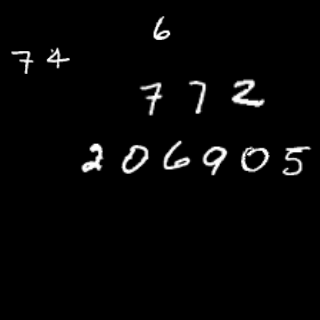 6
74
772
206905